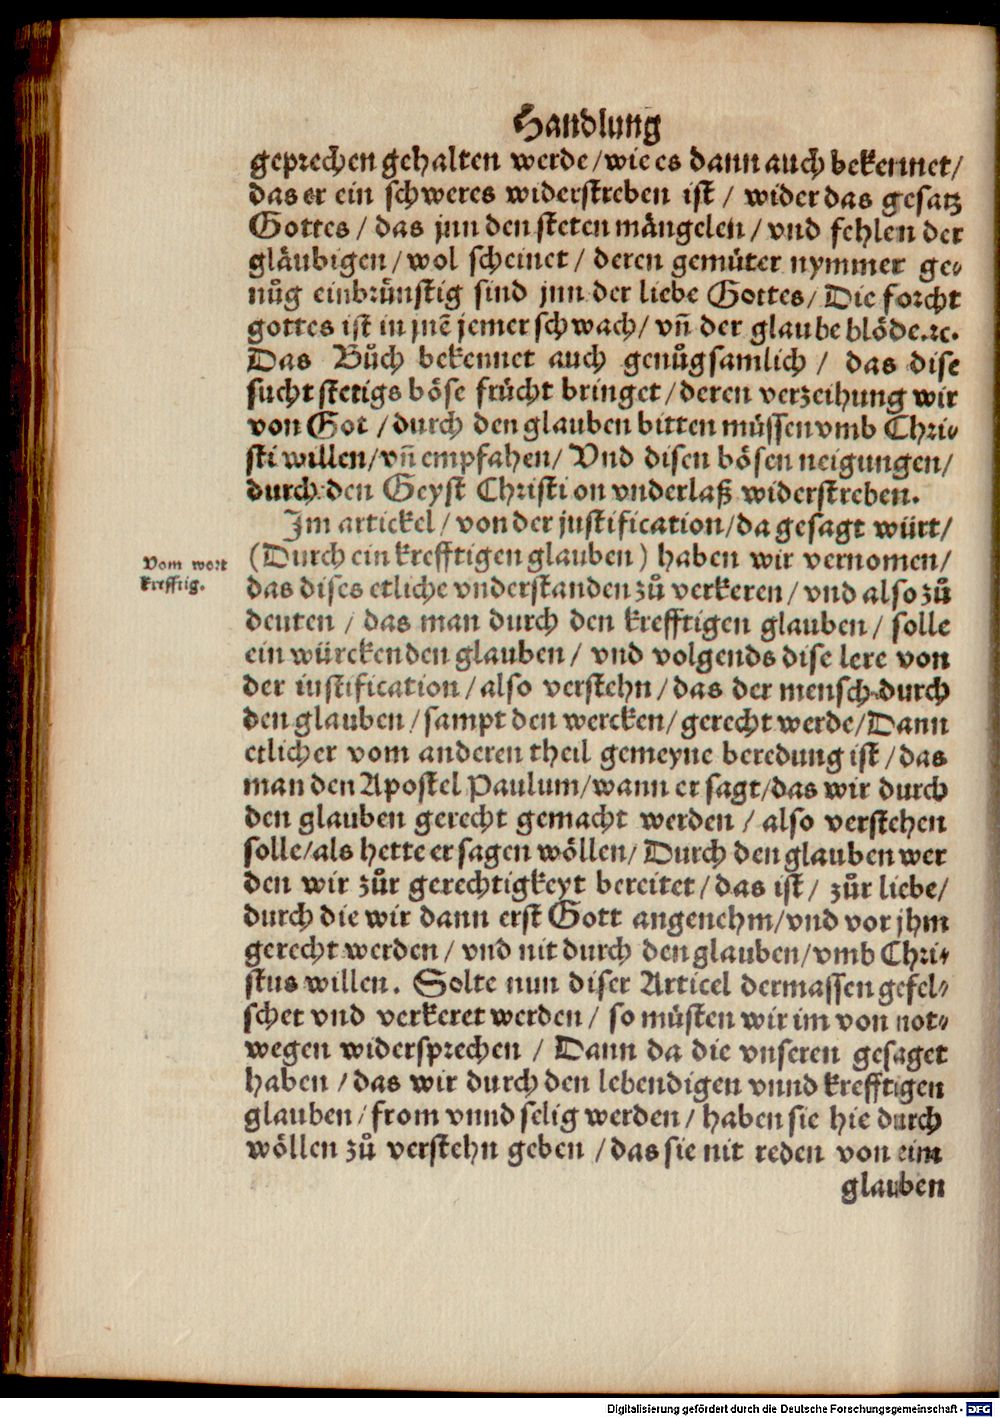 Handlung
geprechen gehalten werde / wie es dann auch bekennet /
das er ein schweres widerstreben ist / wider das gesatz
Gottes / das jnn den steten mångelen / vnd fehlen der
glåubigen / wol scheinet / deren gemůter nymmer ge⸗
nůg einbrůnstig sind jnn der liebe Gottes / Die forcht
gottes ist in jnẽ jemer schwach / vñ der glaube blöde. ꝛc.
Das Bůch bekennet auch genůgsamlich / das dise
sucht stetigs böse frücht bringet / deren verzeihung wir
von Got / durch den glauben bitten müssen vmb Chri⸗
sti willen / vñ empfahen / Vnd disen bösen neigungen /
durch den Geyst Christi on vnderlaß widerstreben.
Im artickel / von der justification / da gesagt würt /
(Durch ein krefftigen glauben) haben wir vernomen /
Vom wort
krefftig.
das dises etliche vnderstanden zů verkeren / vnd also zů
deuten / das man durch den krefftigen glauben / solle
ein würckenden glauben / vnd volgends dise lere von
der iustification / also verstehn / das der mensch durch
den glauben / sampt den wercken / gerecht werde / Dann
etlicher vom anderen theil gemeyne beredung ist / das
man den Apostel Paulum / wann er sagt / das wir durch
den glauben gerecht gemacht werden / also verstehen
solle / als hette er sagen wöllen / Durch den glauben wer
den wir zůr gerechtigkeyt bereitet / das ist / zůr liebe /
durch die wir dann erst Gott angenehm / vnd vor jhm
gerecht werden / vnd nit durch den glauben / vmb Chri⸗
stus willen. Solte nun diser Articel dermassen gefel⸗
schet vnd verkeret werden / so müsten wir im von not⸗
wegen widersprechen / Dann da die vnseren gesaget
haben / das wir durch den lebendigen vnnd krefftigen
glauben / from vnnd selig werden / haben sie hie durch
wöllen zů verstehn geben / das sie nit reden von eim
glauben
Digitalisierung gefördert durch die Deutsche Forschungsgemeinschaft - DFG